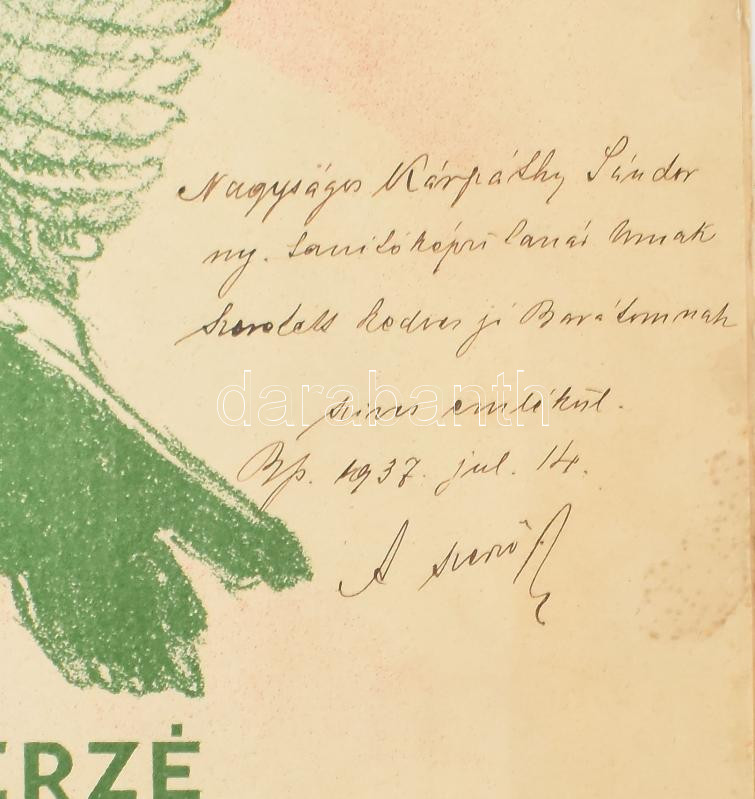 Nagyságos Kárpáthy Sándor
ny. tanitóképzi tanár Urnak
Szeretett kedves jó Barátomnak
darabanth
szives emlékül.
Bp. 1937. jul. 14.
A szerző
ERZÉ